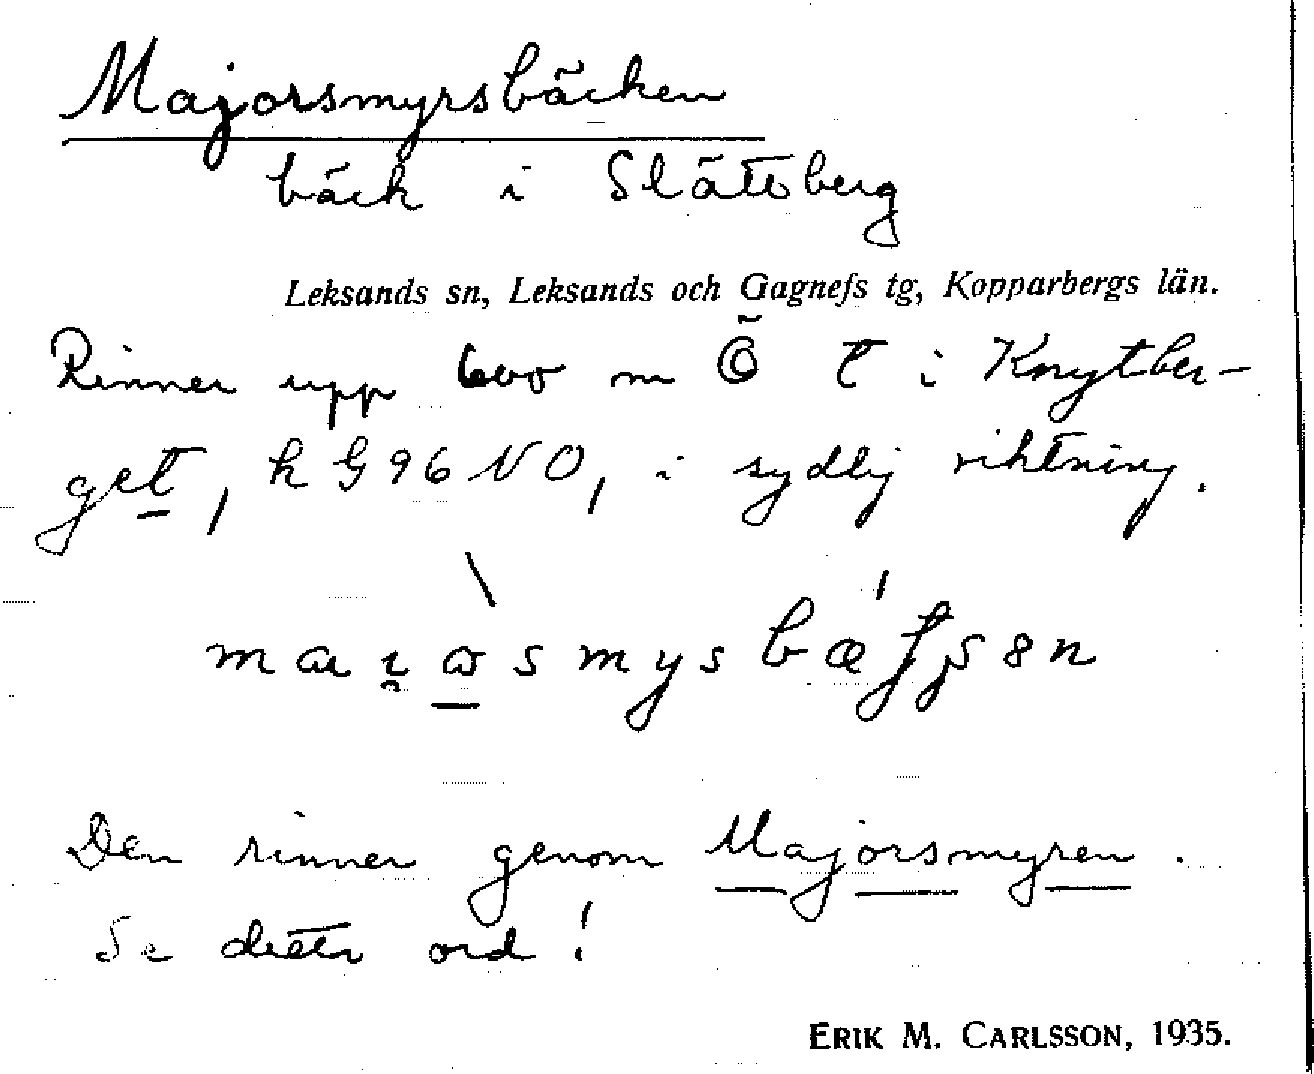 Majorsmyrsbäcken
bäck i Slättberg
Leksands sn, Leksands och Gagnefs tg, Kopparbergs län.
Rinner upp 600 m Ö t i Knytber-
get, k G 96 NO, i sydlig riktning.
Den rinner genom Majorsmyren.
Se detta ord!
ERIK M. CARLSSON, 1935.